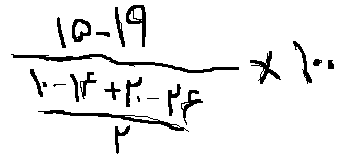 ۱۵-۱۹
۱۰-۱۴+۲۰-۲۴ × ۱۰۰
۲